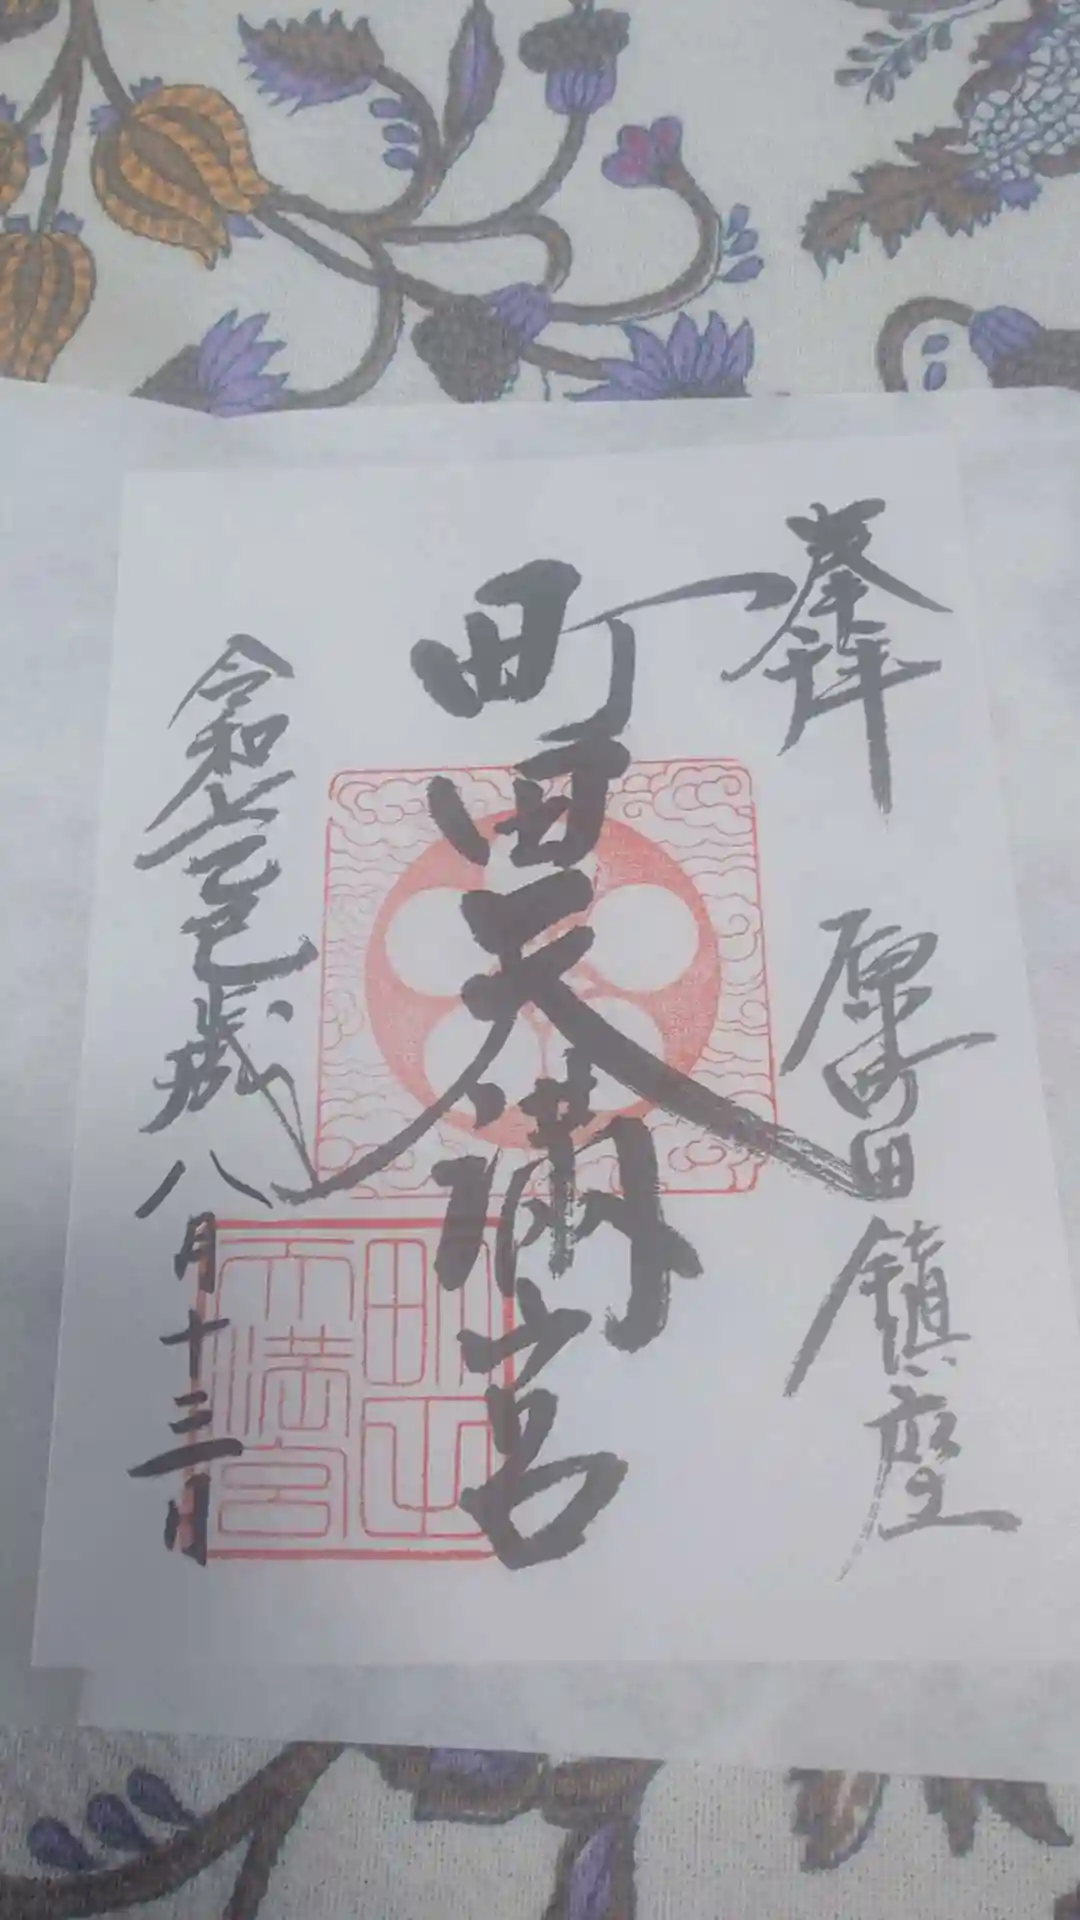 奉拝
原町田鎮座
町田天満宮
令和七乙巳歳八月十三日
町田
天満宮